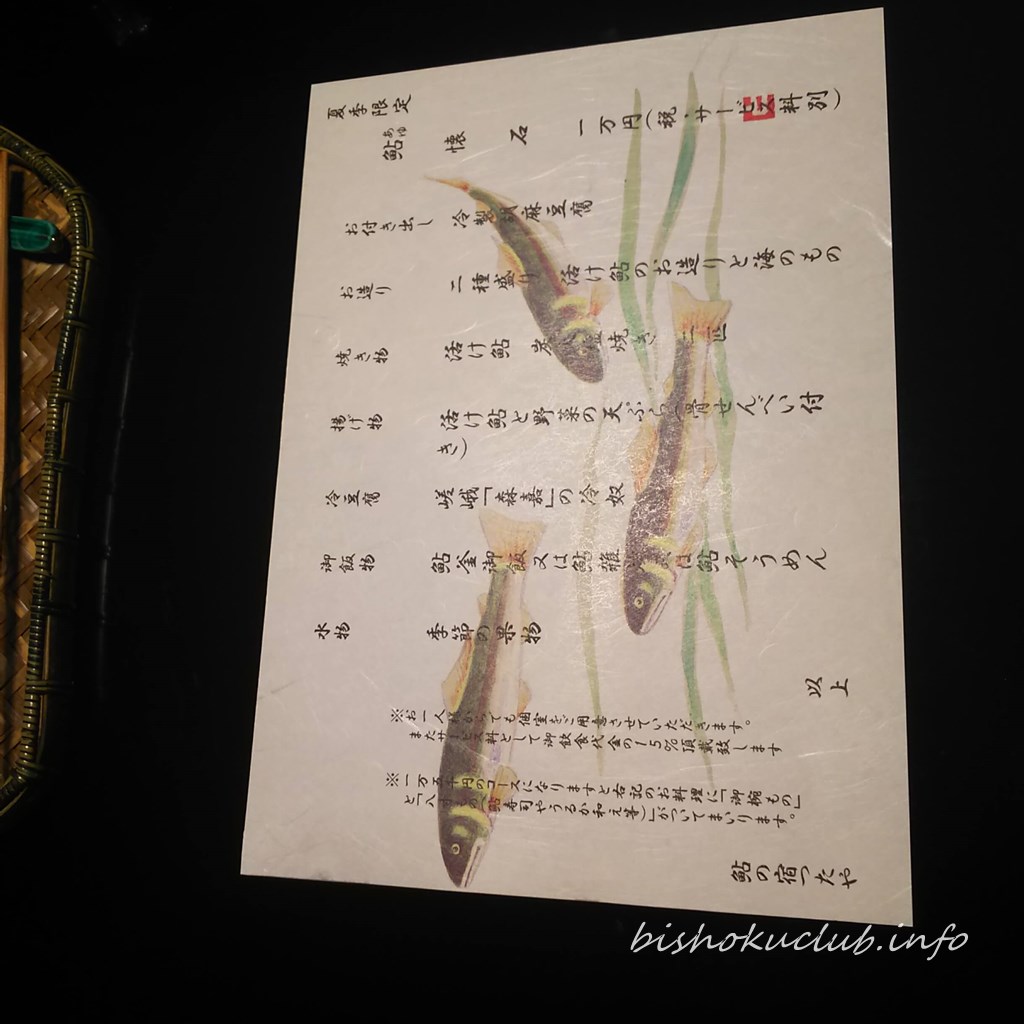 夏季限定
鮎 懐 石 一万円(税・サービス料別)
あゆ
お付き出し 冷製胡麻豆腐
お造り 二種盛り 活け鮎のお造りと海のもの
焼き物 活け鮎 炭塩焼き 二匹
揚げ物 活け鮎と野菜の天ぷら(骨せんべい付
き)
冷豆腐 嵯峨「森嘉」の冷奴
御飯物 鮎釜御飯又は鮎雑 は鮎そうめん
水物 季節の果物
以上
※お一人様からでも個室をご用意させていただきます。
またサービス料として御飲食代金の15%頂戴致します
※一万五千円のコースになりますと右記のお料理に「御椀もの」
と「八寸もの(鮎寿司やうるか和え等)」がついてまいります。
鮎の宿つたや
bishokuclub.info